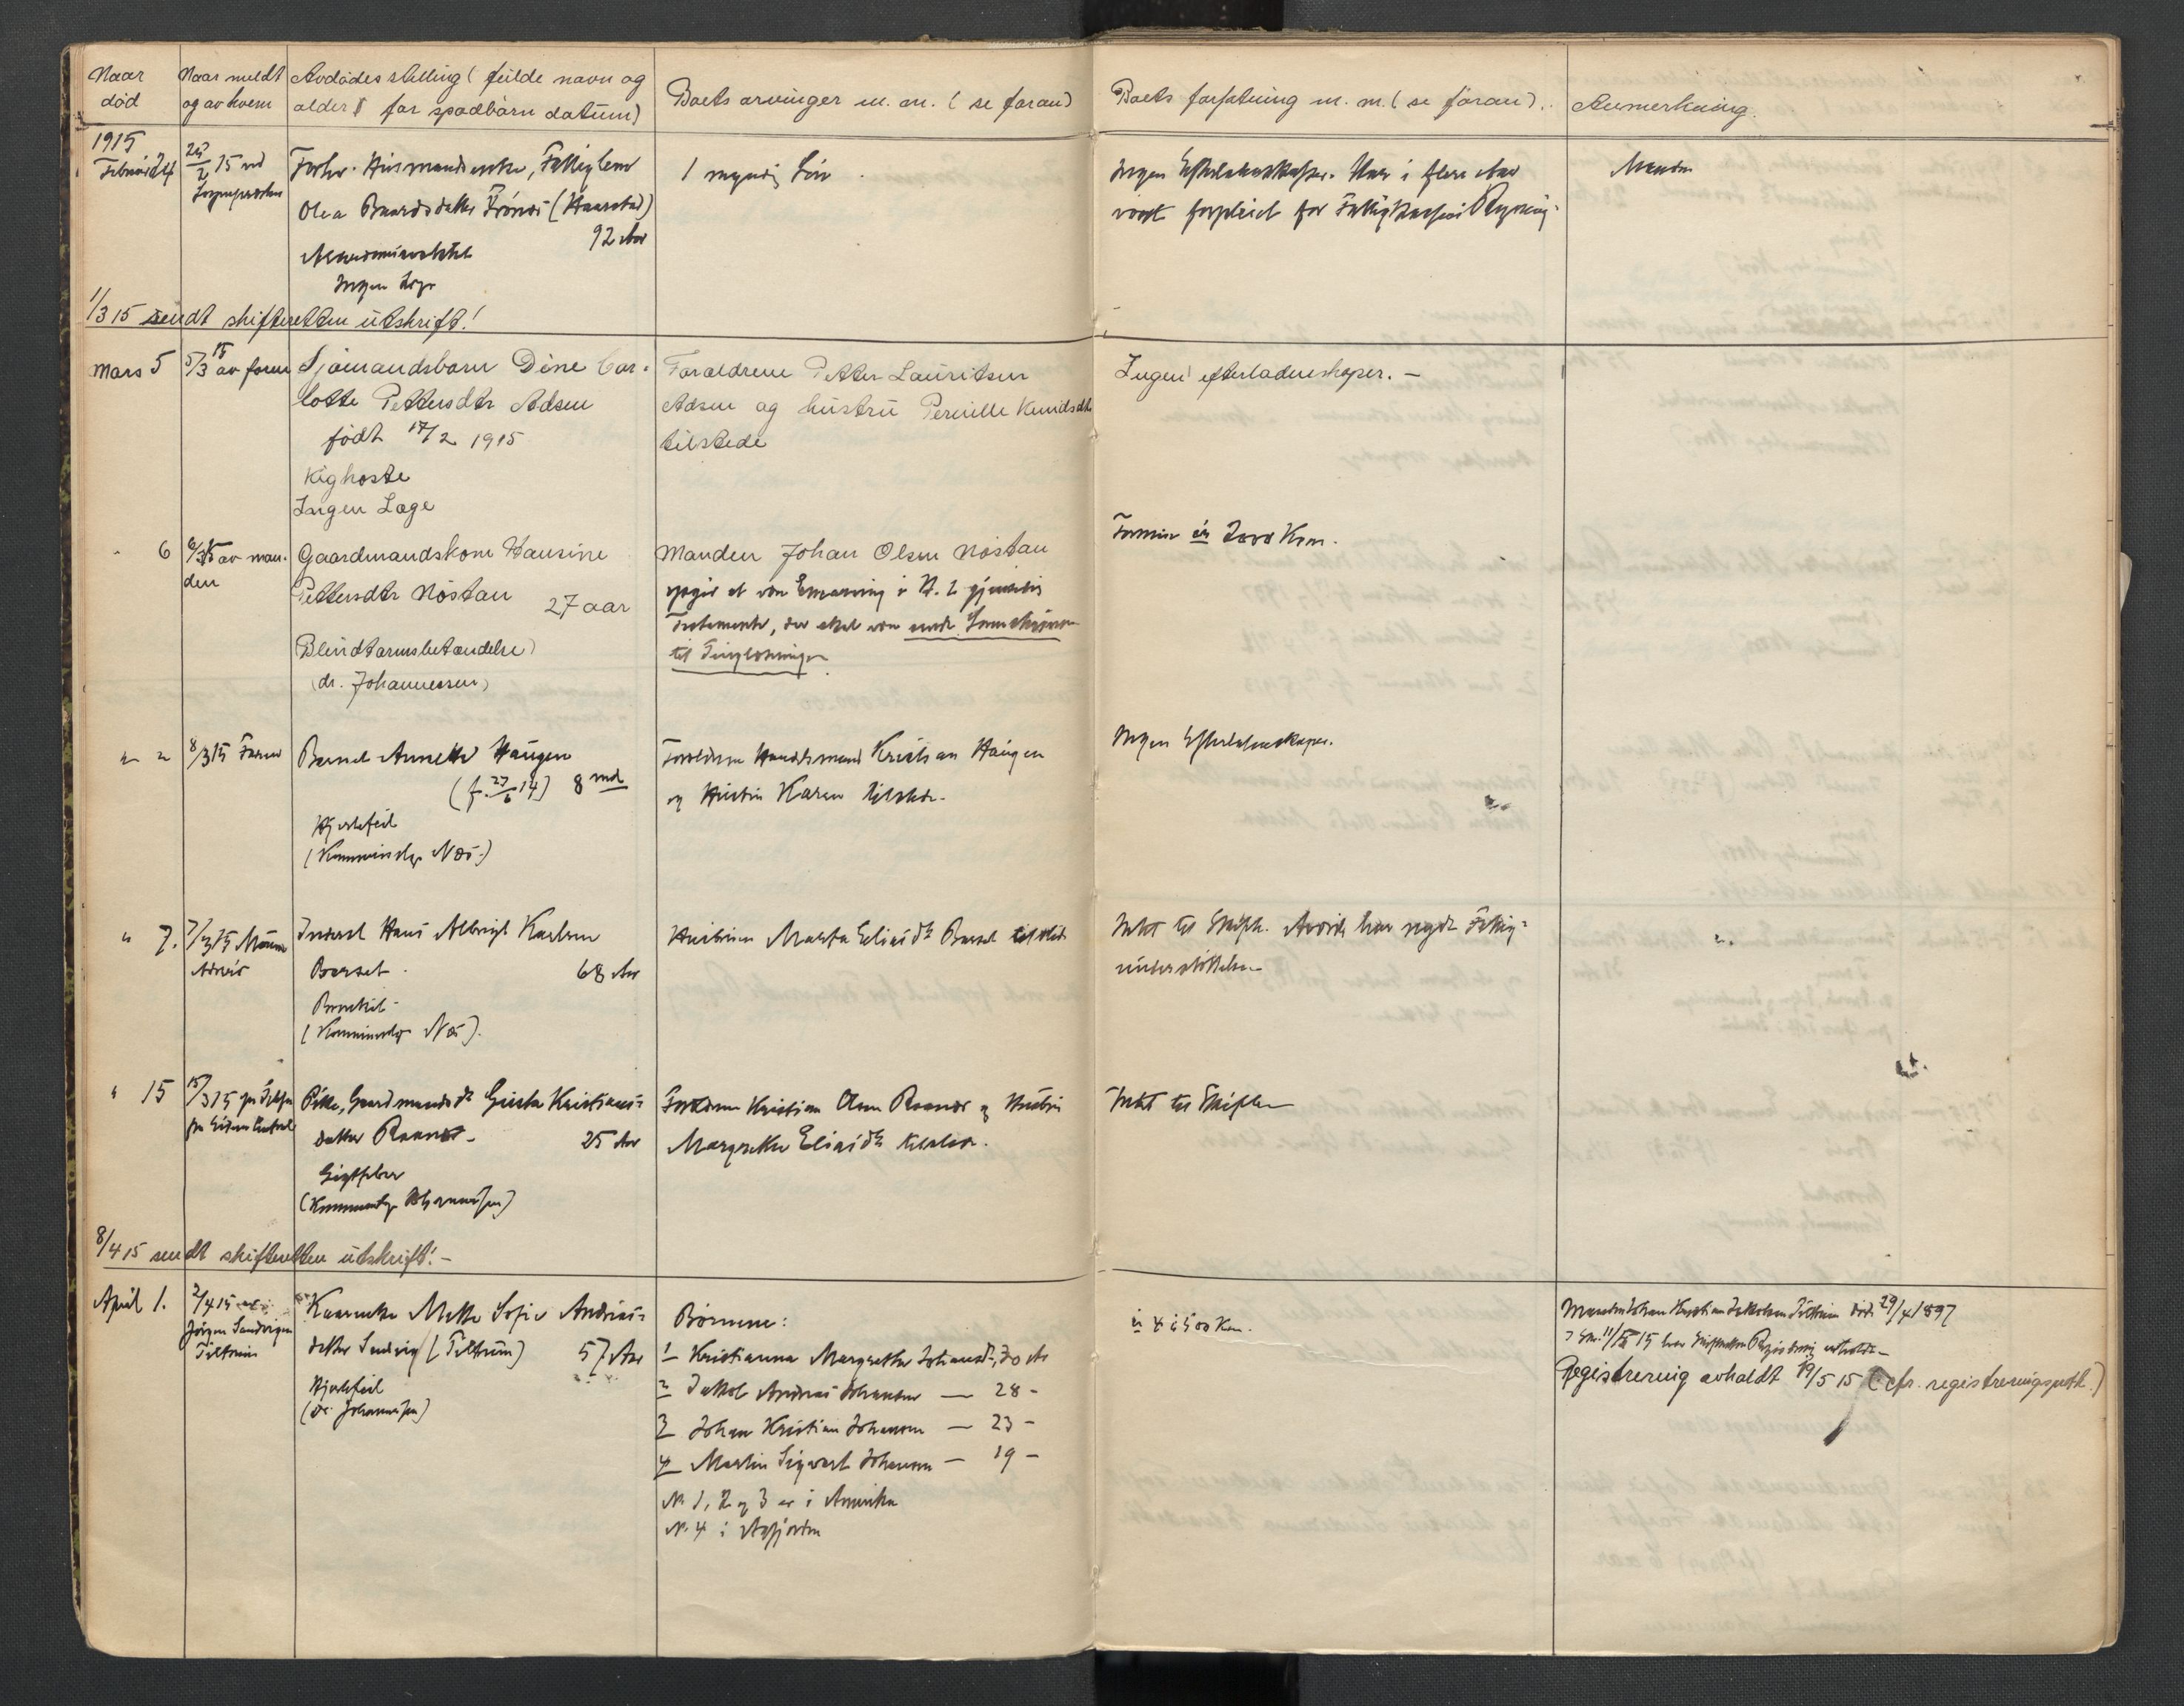 Naar død
Naar meldt og av hvem
Avdødes stilling (fulde navn og alder & for spædbarn datum)
Boets arvinger m. m. (se foran)
Boets forfatning m. m. (se foran).
Anmerkning.
1915
Februar 24
25/2 15 ved
Forhv. Husmandsenke, Fattiglem
Olea Baardsdatter (Haarstad)
92 Aar
Ingen Læge
1 myndig Søn.
Ingen Efterladenskaper. Har i flere Aar
vært forpleiet for Fattigkassens Regning.
1/3 15 sendt skifteretten utskrift!
Mars 5
5/3 15 av faren
Sjømandsbarn Dine Car-
lotte Pettersdtr Adsen
født 17/2 1915
Kighoste
Ingen Læge
Forældrene Petter Lauritsen
Adsen og hustru Pernille Knudsdtr
tilstede
Ingen efterladenskaper. —
" 6
6/3 15 av man-
den
Gaardmandskone Hansine
Pettersdtr Nøstan 27 aar
(Blindtarmsbetændelse)
(dr. Johannessen)
Manden Johan Olsen Nøstan
opgir at være Enearving i H. t. gjensidig
Testamente, der skal være
til Tinglæsning.
Formue ca 2000 Kron.
" "
8/3 15 Faren
Barnet Annette Haugen
(f. 27/6 14) 8 md
Hjertefeil
(Kommunelæge Næs.)
Forældrene Kristian Haugen
og Hustru Karen tilstede.
Ingen Efterladenskaper.
" 7.
7/3 15
Inderst Hans Albrigt Karlsen
Borset. 68 Aar
Bronkit
(Kommunelæge Næs).
Hustruen Marta Eliasdtr Borset tilstede
Intet til Skifte. Avdøde har nydt Fattig-
understøttelse
" 15
15/3 15 pr Telefon
fra
Pike, Gaardmandsdtr Gusta Kristians-
datter 25 Aar
Gigtfeber
(Kommunelæge Johannessen)
Forældrene Kristian Olsen og Hustru
Margrethe Eliasdtr tilstede.
Intet til Skifte
8/4 15 sendt skifteretten utskrift! —
April 1.
2/4 15 av
Jørgen Sandvigen
Tiltrum
Kaarenke Mette Sofie Andreas-
datter Sandvig (Tiltrum) 57 Aar
Hjertefeil
(Dr. Johannessen)
Børnene:
1 Kristianna Margrethe Johansdtr, 30 Ar
2 Jakob Andreas Johansen — 28 —
3 Johan Kristian Johansen — 23 —
4 Martin Sigvart Johansen — 19 —
No 1, 2 og 3 er i Amerika
No 4 i Aafjorden
ca 4 à 500 Kron.
Manden Johan Kristian Jakobsen Tiltrum død 29/4 1897
15 har Skifteretten Registrering avholdt —
Registrering avholdt 19/5 15 (cfr. registreringsprot.)